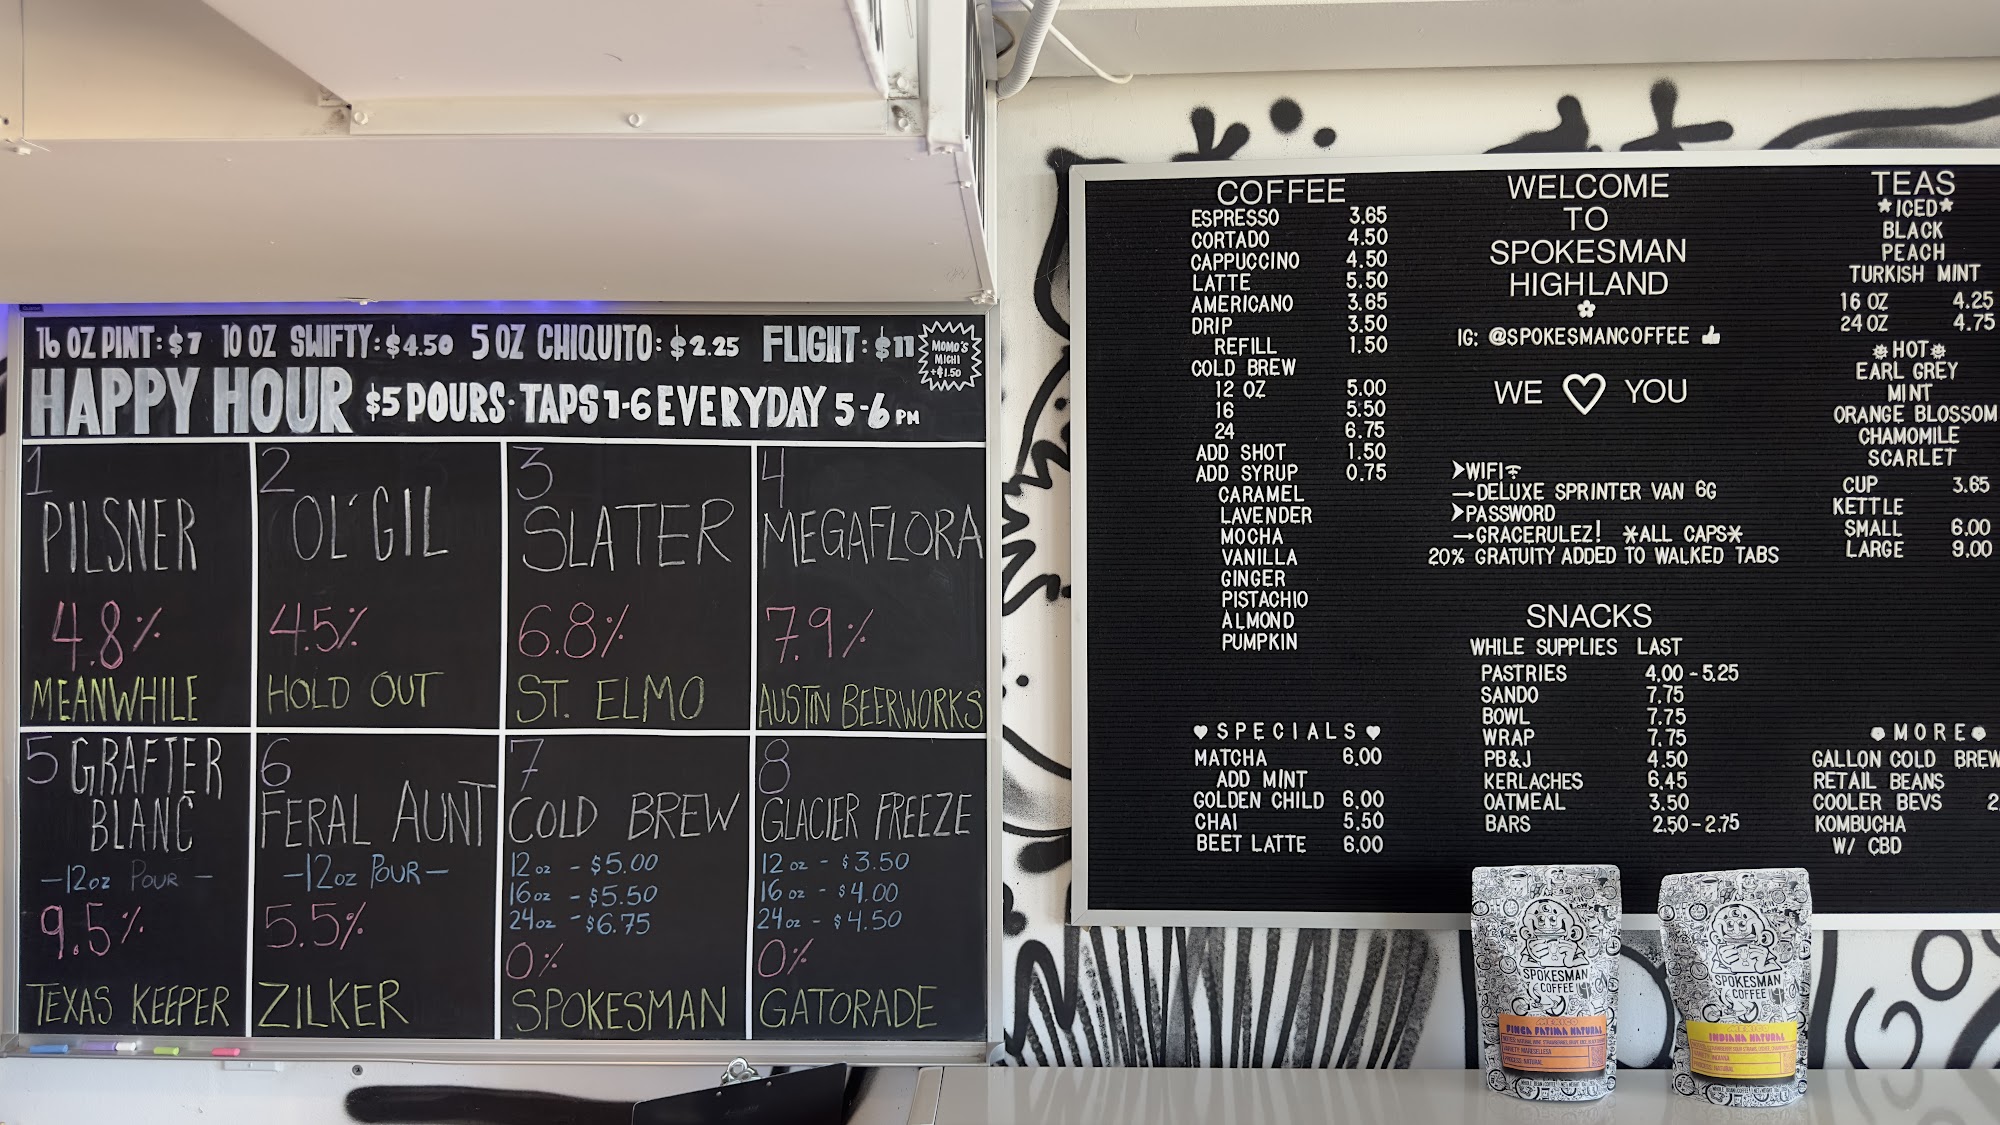 16 OZ PINT: $7 10 OZ SWIFTY: $4.50 5 OZ CHIQUITO: $2.25 FLIGHT: $11
MOMO'S
MICHI
+$1.50
HAPPY HOUR $5 POURS · TAPS 1-6 EVERYDAY 5-6 PM
1
PILSNER
4.8%
MEANWHILE
2
OL' GIL
4.5%
HOLD OUT
3
SLATER
6.8%
ST. ELMO
4
MEGAFLORA
7.9%
AUSTIN BEERWORKS
5 GRAFTER
BLANC
-12oz POUR-
9.5%
TEXAS KEEPER
6
FERAL AUNT
-12oz POUR-
5.5%
ZILKER
7
COLD BREW
12oz - $5.00
16oz - $5.50
24oz - $6.75
0%
SPOKESMAN
8
GLACIER FREEZE
12oz - $3.50
16oz - $4.00
24oz - $4.50
0%
GATORADE
COFFEE
ESPRESSO 3.65
CORTADO 4.50
CAPPUCCINO 4.50
LATTE 5.50
AMERICANO 3.65
DRIP 3.50
REFILL 1.50
COLD BREW
12 OZ 5.00
16 5.50
24 6.75
ADD SHOT 1.50
ADD SYRUP 0.75
CARAMEL
LAVENDER
MOCHA
VANILLA
GINGER
PISTACHIO
ALMOND
PUMPKIN
♥ SPECIALS ♥
MATCHA 6.00
ADD MINT
GOLDEN CHILD 6.00
CHAI 5.50
BEET LATTE 6.00
WELCOME
TO
SPOKESMAN
HIGHLAND
IG: @SPOKESMANCOFFEE 👍
WE ♡ YOU
➤WIFI
→DELUXE SPRINTER VAN 6G
➤PASSWORD
→GRACERULEZ! *ALL CAPS*
20% GRATUITY ADDED TO WALKED TABS
SNACKS
WHILE SUPPLIES LAST
PASTRIES 4.00-5.25
SANDO 7.75
BOWL 7.75
WRAP 7.75
PB&J 4.50
KERLACHES 6.45
OATMEAL 3.50
BARS 2.50-2.75
TEAS
*ICED*
BLACK
PEACH
TURKISH MINT
16 OZ 4.25
24 OZ 4.75
HOT
EARL GREY
MINT
ORANGE BLOSSOM
CHAMOMILE
SCARLET
CUP 3.65
KETTLE
SMALL 6.00
LARGE 9.00
MORE
GALLON COLD BREW
RETAIL BEANS
COOLER BEVS 2
KOMBUCHA
W/ CBD
SPOKESMAN
COFFEE
MEXICO
FINCA FATIMA NATURAL
VARIETY: MARSELLESA
PROCESS: NATURAL
SPOKESMAN
COFFEE
MEXICO
INDIANA NATURAL
PROCESS: NATURAL